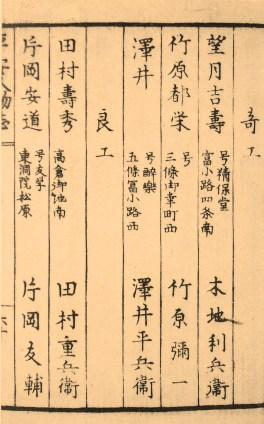 奇工
望月吉壽 号精保堂 富小路四条南 木地利兵衞
竹原都栄 号 三條御幸町西 竹原彌一
澤井 号醉樂 五條冨小路西 澤井平兵衞
良工
田村壽秀 高倉御池南 田村重兵衞
片岡安道 号友學 東洞院松原 片岡友輔
平安人物志